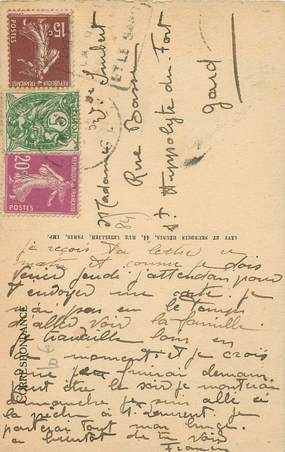 15c
POSTES
REPUBLIQUE FRANÇAISE
5
20c
REPUBLIQUE FRANÇAISE
POSTES
Madame Vve Imbert
Rue Basse
St Hyppolyte du Fort
Gard
84
LEVY ET NEURDEIN REUNIS, 44, RUE LETELLIER, PARIS, IMP.
CORRESPONDANCE
je reçois ta lettre ce
matin et comme je dois
venir jeudi j'attendais pour
t'envoyer une carte. je
n'ai pas eu le temps
d'aller voir la famille.
je travaille loin en
ce moment et je crois
que je finirai demain
peut être le soir je monterai
dimanche je suis allé à
la pêche à St Laurent. je
porterai tout mon linge.
a bientôt de te voir
Francis